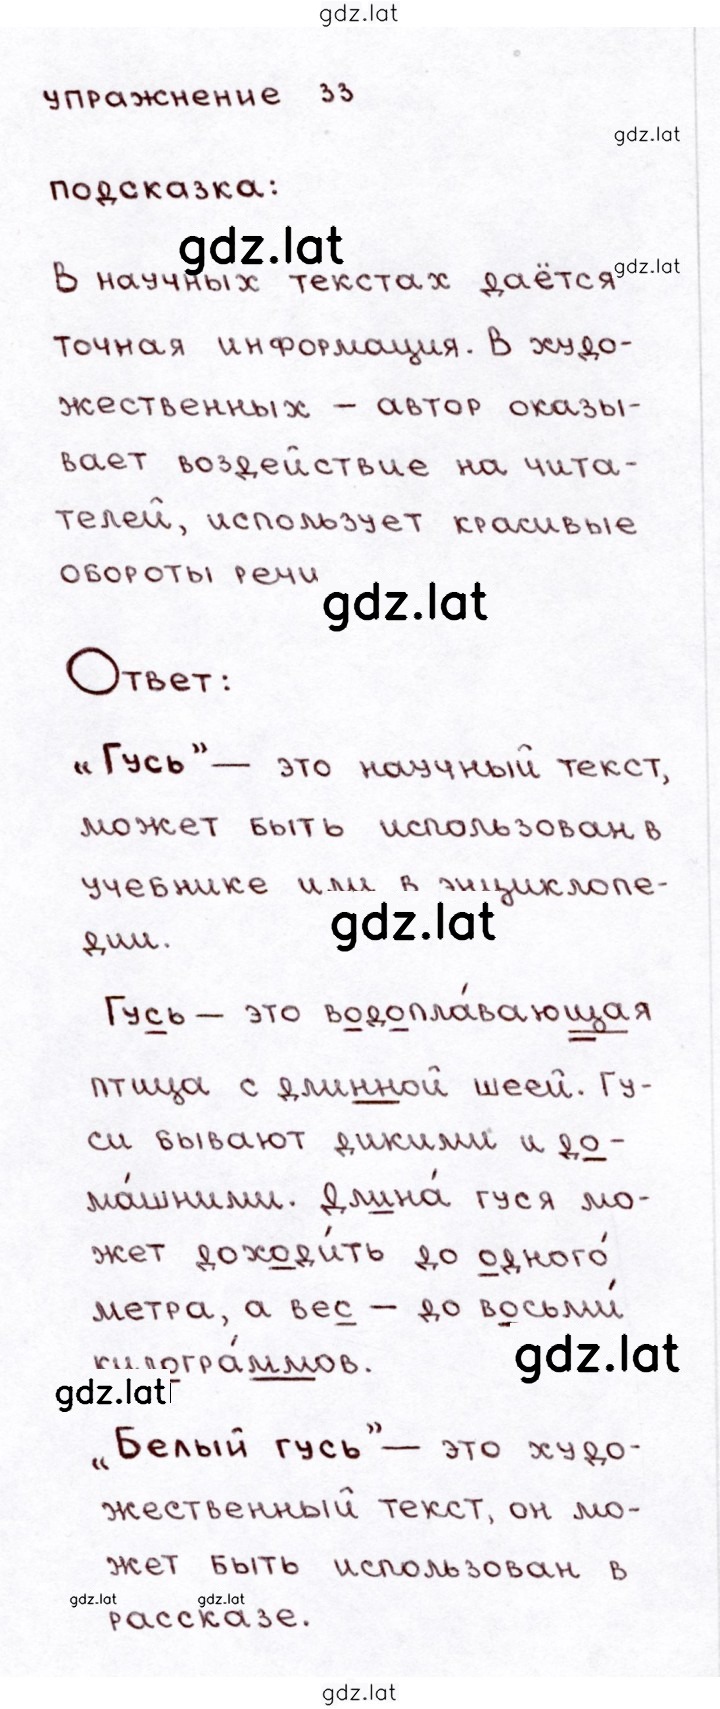 gdz.lat
упражнение 33
gdz.lat
подсказка:
gdz.lat
В научных текстах даётся
gdz.lat
точная информация. В худо-
жественных – автор оказы-
вает воздействие на чита-
телей, использует красивые
обороты речи
gdz.lat
Ответ:
„Гусь” — это научный текст,
может быть использован в
учебнике или в энциклопе-
gdz.lat
дии.
Гусь — это водопла́вающая
птица с длинной шеей. Гу-
си бывают дикими и до-
ма́шними. Длина́ гуся мо-
жет доходи́ть до одного́
метра, а вес – до восьми́
gdz.lat
килогра́ммов.
gdz.lat
„Белый гусь” — это худо-
жественный текст, он мо-
жет быть использован в
gdz.lat gdz.lat
рассказе.
gdz.lat